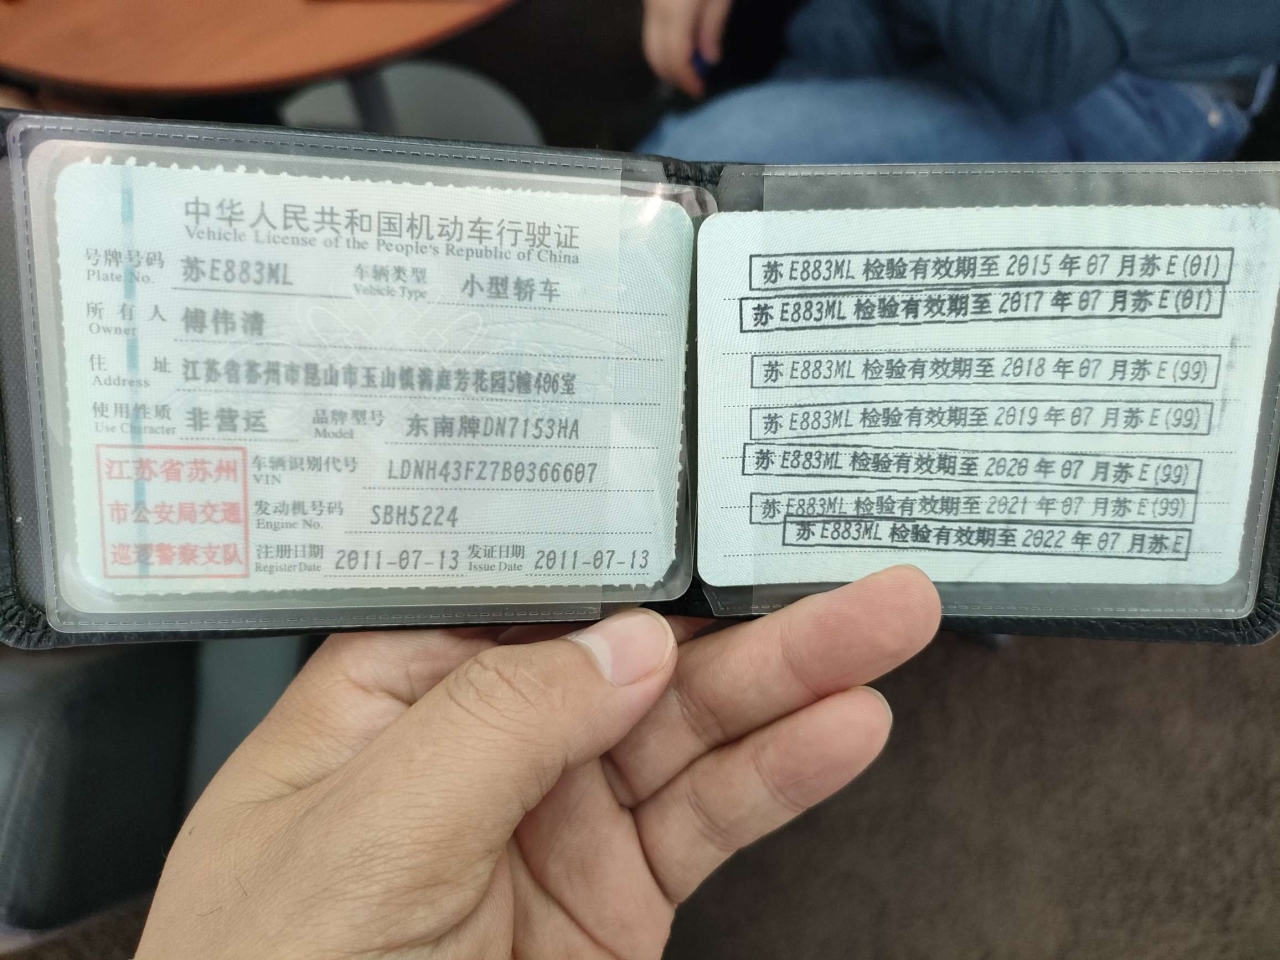 中华人民共和国机动车行驶证
Vehicle License of the People's Republic of China
号牌号码 苏E883ML 车辆类型 小型轿车
Plate No. Vehicle Type
所有人 傅伟清
Owner
住址 江苏省苏州市昆山市玉山镇满庭芳花园5幢406室
Address
使用性质 非营运 品牌型号 东南牌DN7153HA
Use Character Model
江苏省苏州
市公安局交通
巡逻警察支队
车辆识别代号 LDNH43FZ7B0366607
VIN
发动机号码 SBH5224
Engine No.
注册日期 2011-07-13 发证日期 2011-07-13
Register Date Issue Date
苏E883ML 检验有效期至 2015 年 07 月苏E(01)
苏E883ML 检验有效期至 2017 年 07 月苏E(01)
苏E883ML 检验有效期至 2018 年 07 月苏E(99)
苏E883ML 检验有效期至 2019 年 07 月苏E(99)
苏E883ML 检验有效期至 2020 年 07 月苏E(99)
苏E883ML 检验有效期至 2021 年 07 月苏E(99)
苏E883ML 检验有效期至 2022 年 07 月苏E